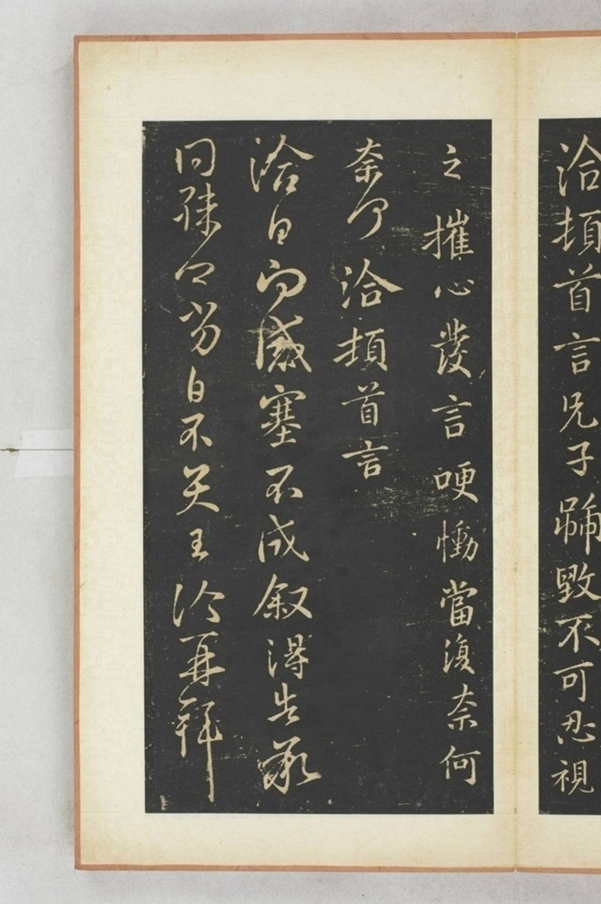 洽頓首言兄子號毀不可忍視
之摧心發言哽慟當復奈何
奈何洽頓首言
洽白白感塞不成叙得告承
同殊勞白不具王洽再拜